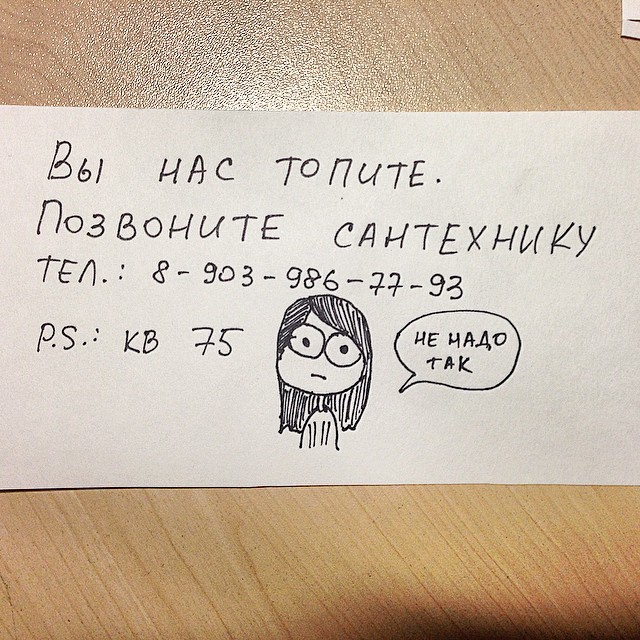 Вы нас топите.
Позвоните сантехнику
тел.: 8-903-986-77-93
P.S.: кв 75
не надо
так